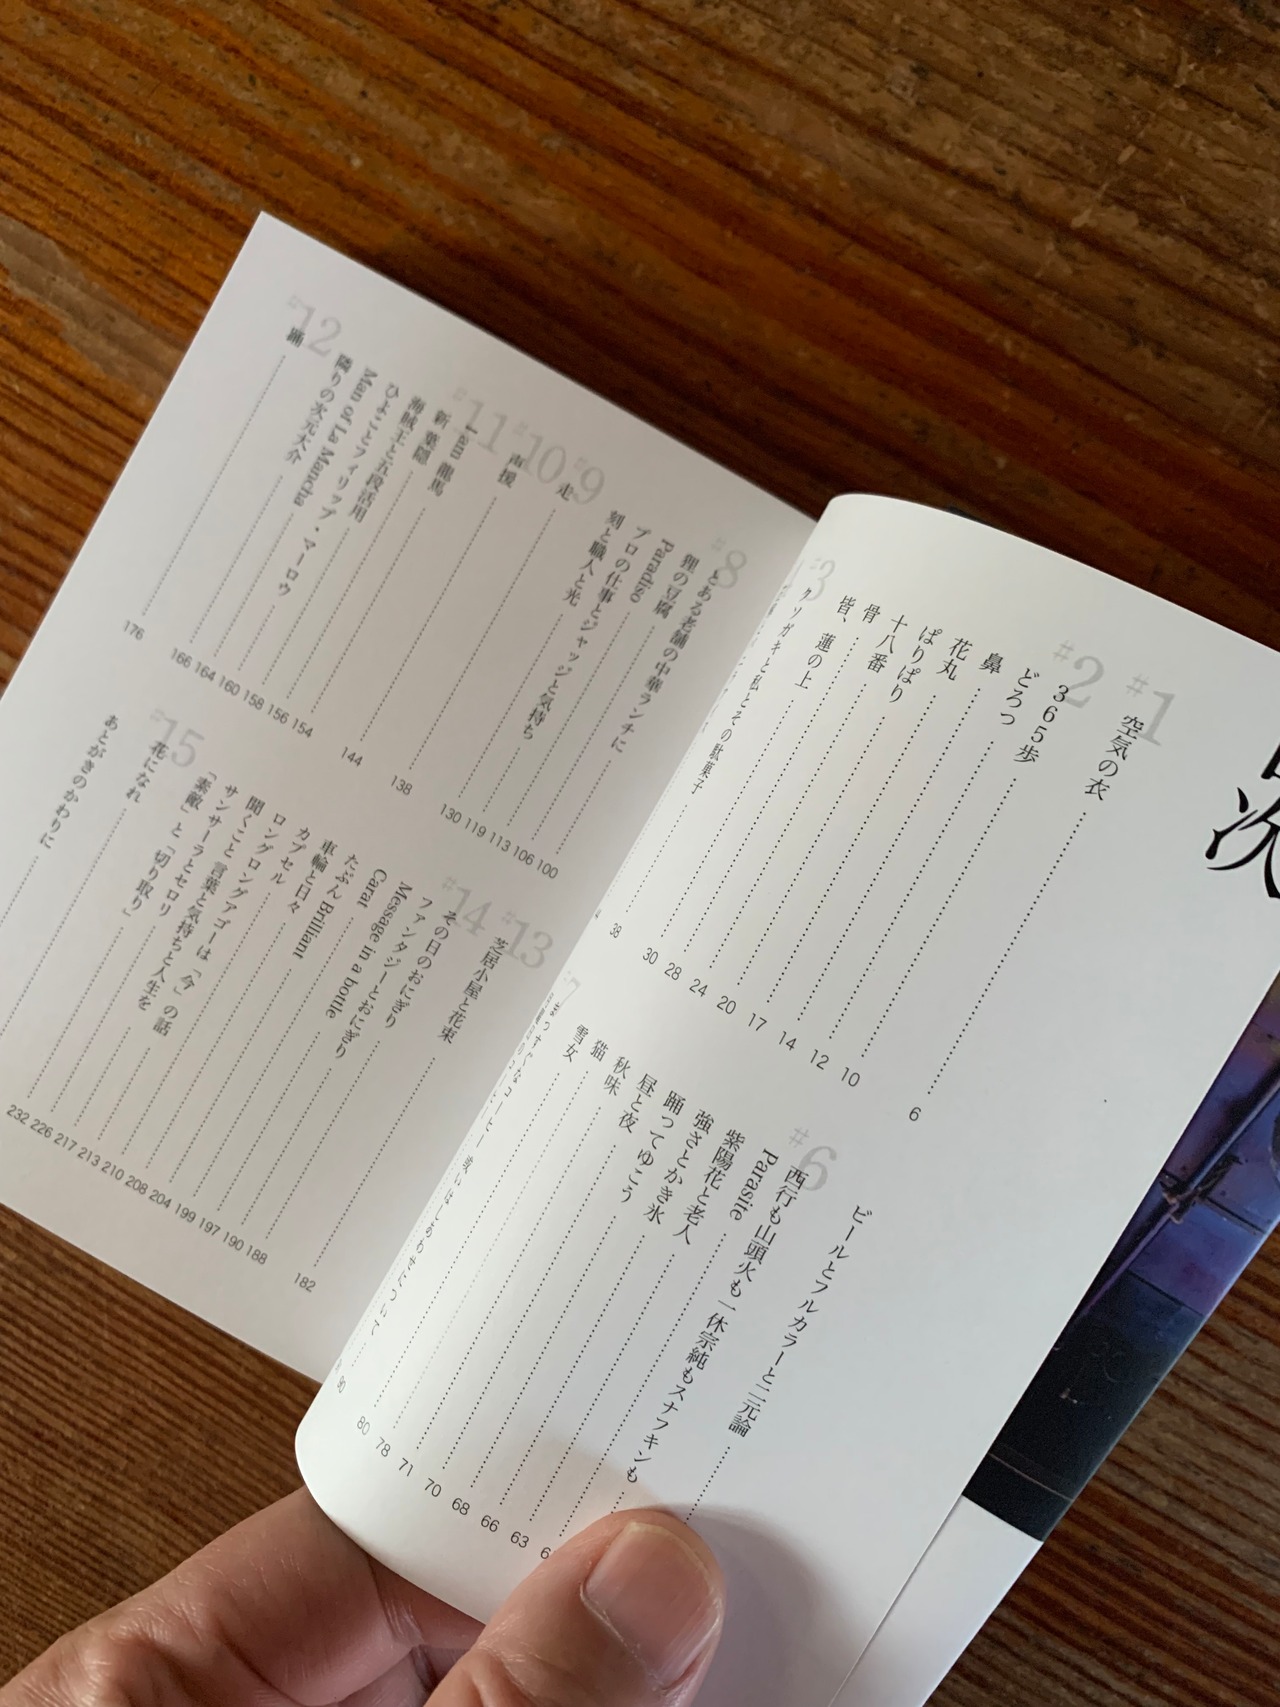 次
#1
空気の衣 6
#2
365歩 10
どろっ 12
鼻 14
花丸 17
ぱりぱり 20
十八番 24
骨 28
皆、蓮の上 30
#3
クソガキと私とその駄菓子 38
ビールとフルカラーと二元論
#6
西行も山頭火も一休宗純もスナフキンも
Parasite
紫陽花と老人 63
強さとかき氷 66
踊ってゆこう 68
昼と夜 70
秋味 71
猫 78
雪女 80
コーヒー 或いはしあわせについて 90
#8
とある老舗の中華ランチに 100
狸の豆腐 106
Paradiso 113
プロの仕事とジャッジと気持ち 119
刻と職人と光 130
#9
走 138
#10
声援 144
#11
I am 龍馬 154
新 葉隠 156
海賊王と五段活用 158
ひよことフィリップ・マーロウ 160
Man of La Mancha 164
隣りの次元大介 166
#12
踊 176
#13
芝居小屋と花束 182
#14
その日のおにぎり 188
ファンタジーとおにぎり 190
Message in a bottle 197
Carat 199
たぶん Brilliant 204
車輪と日々 208
カプセル 210
ロングロングアゴーは「今」の話 213
聞くこと 言葉と気持ちと人生を 217
サンサーラとセロリ 226
「素敵」と「切り取り」 232
#15
花になれ
あとがきのかわりに